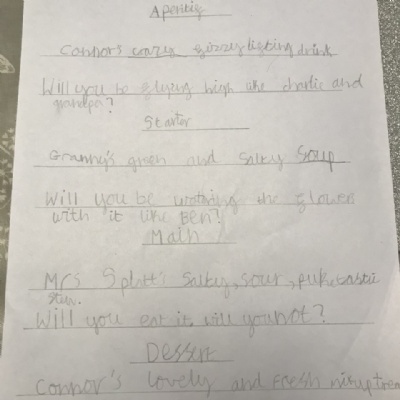 Aperitif
Connors crazy fizzy lifting drink
Will you be flying high like charlie and
grandpa?
Starter
Granny's green and Salky Soup
Will you be watering the flower
with it like Ben?
Main
Mrs Splott's Salky, sour, puketastic
stew.
Will you eat it, will you not?
Dessert
Connor's lovely and Fresh